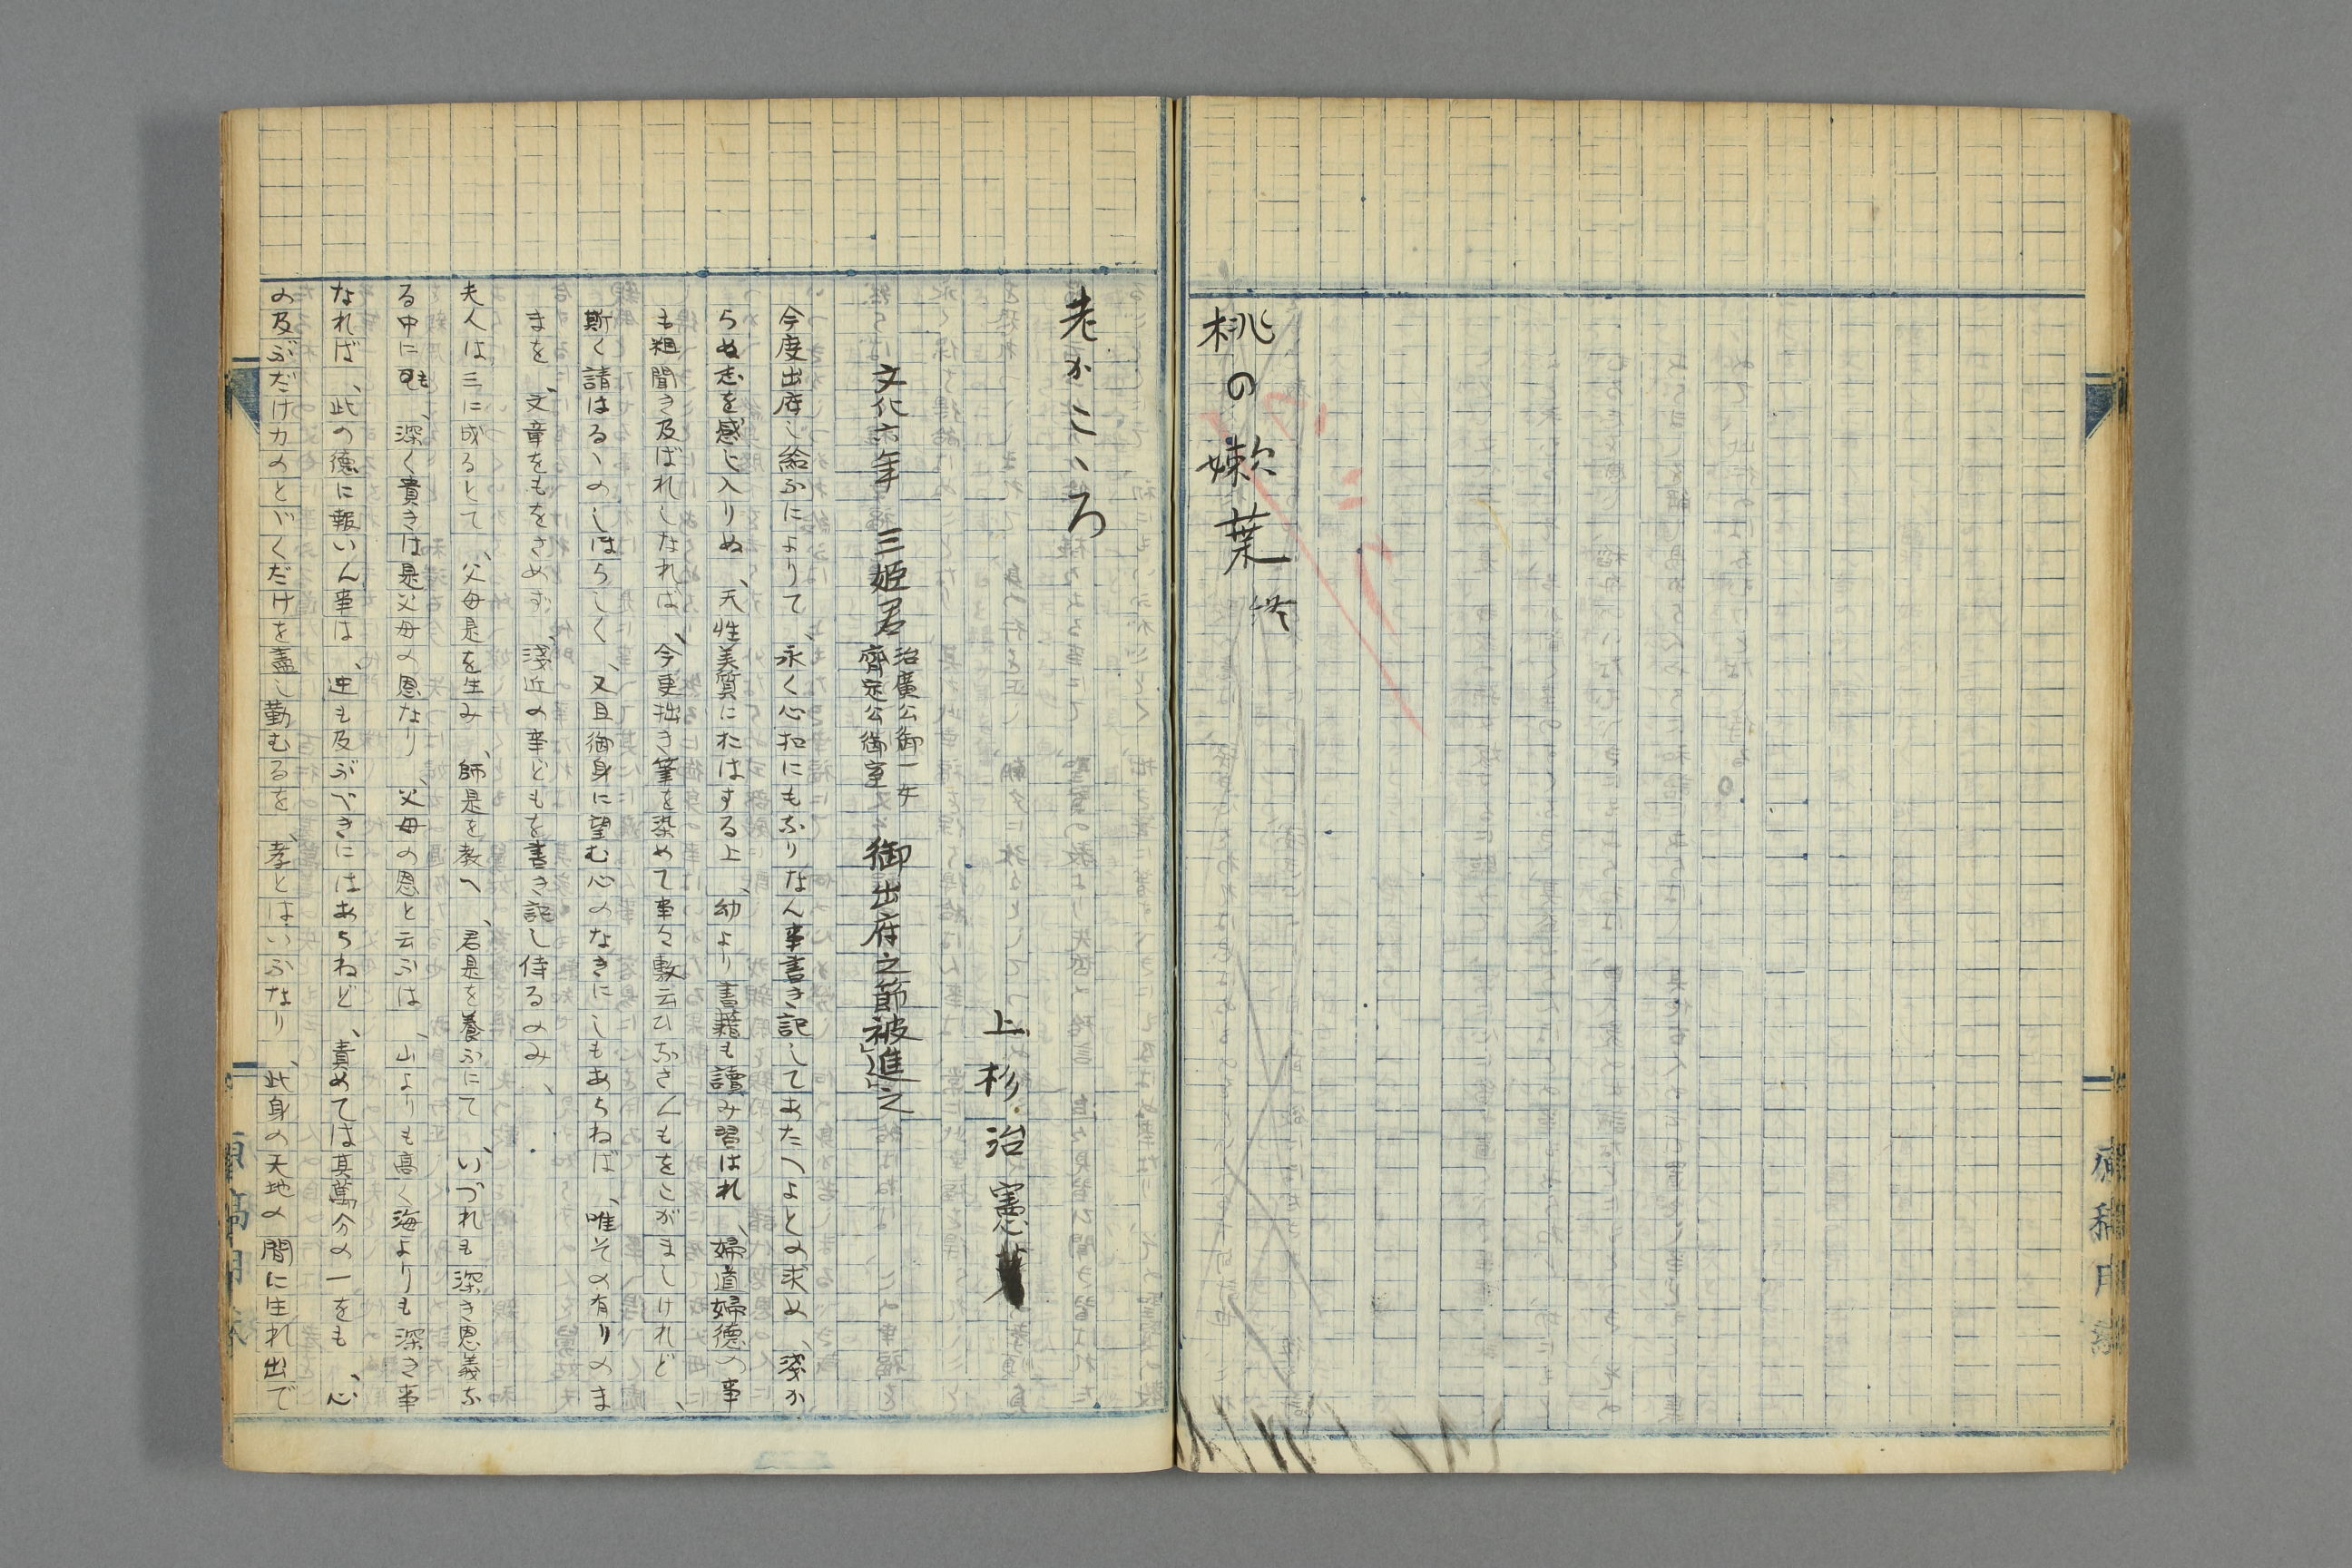 桃の嫩葉 終
老かこゝろ
上杉治憲
文化六年 三姫君 治廣公御一女 齊定公御室 御出府之節被進之
今度出府し給ふによりて、永く心扣にもなりなん事書き記してあたへよとの求め、淺か
らぬ志を感じ入りぬ、天性美質にわはする上、幼より書籍も讀み習はれ、婦道婦德の事
も粗聞き及ばれしなれば、今更拙き筆を染めて事々敷云ひなさんもをこがましけれど、
斯く請はるゝのしほらしく、又且御身に望む心のなきにしもあらねば、唯その有りのま
まを、文章をもをさめず、淺近の事どもを書き記し侍るのみ、
夫人は三に成るとて、父母是を生み、師是を教へ、君是を養ふにて、いづれも深き恩義な
る中にも、深く貴きは是父母の恩なり、父母の恩と云ふは、山よりも高く海よりも深き事
なれば、此の德に報いん事は、迚も及ぶべきにはあらねど、責めては其萬分の一をも、心
の及ぶだけ力のとゞくだけを盡し勤むるを、孝とはいふなり、此身の天地の間に生れ出で
原稿用紙